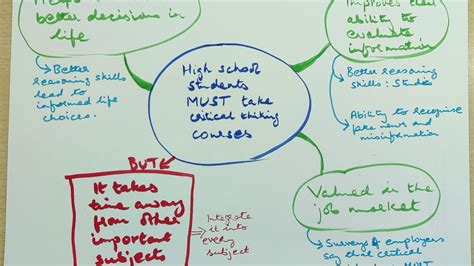 better decisions in
life
Better
reasoning skills
lead to
informed life
choices.
High school
students
MUST take
critical thiking
courses
Improves their
ability to
evaluate
information
Better reasoning
skills: Studies
Ability to recognise
fake news and
misinformation
BUT
It takes
time away
from other
important
subjects
Integrate
it into
every
subject
Valued in the
job market
Surveys of employers
say that critical